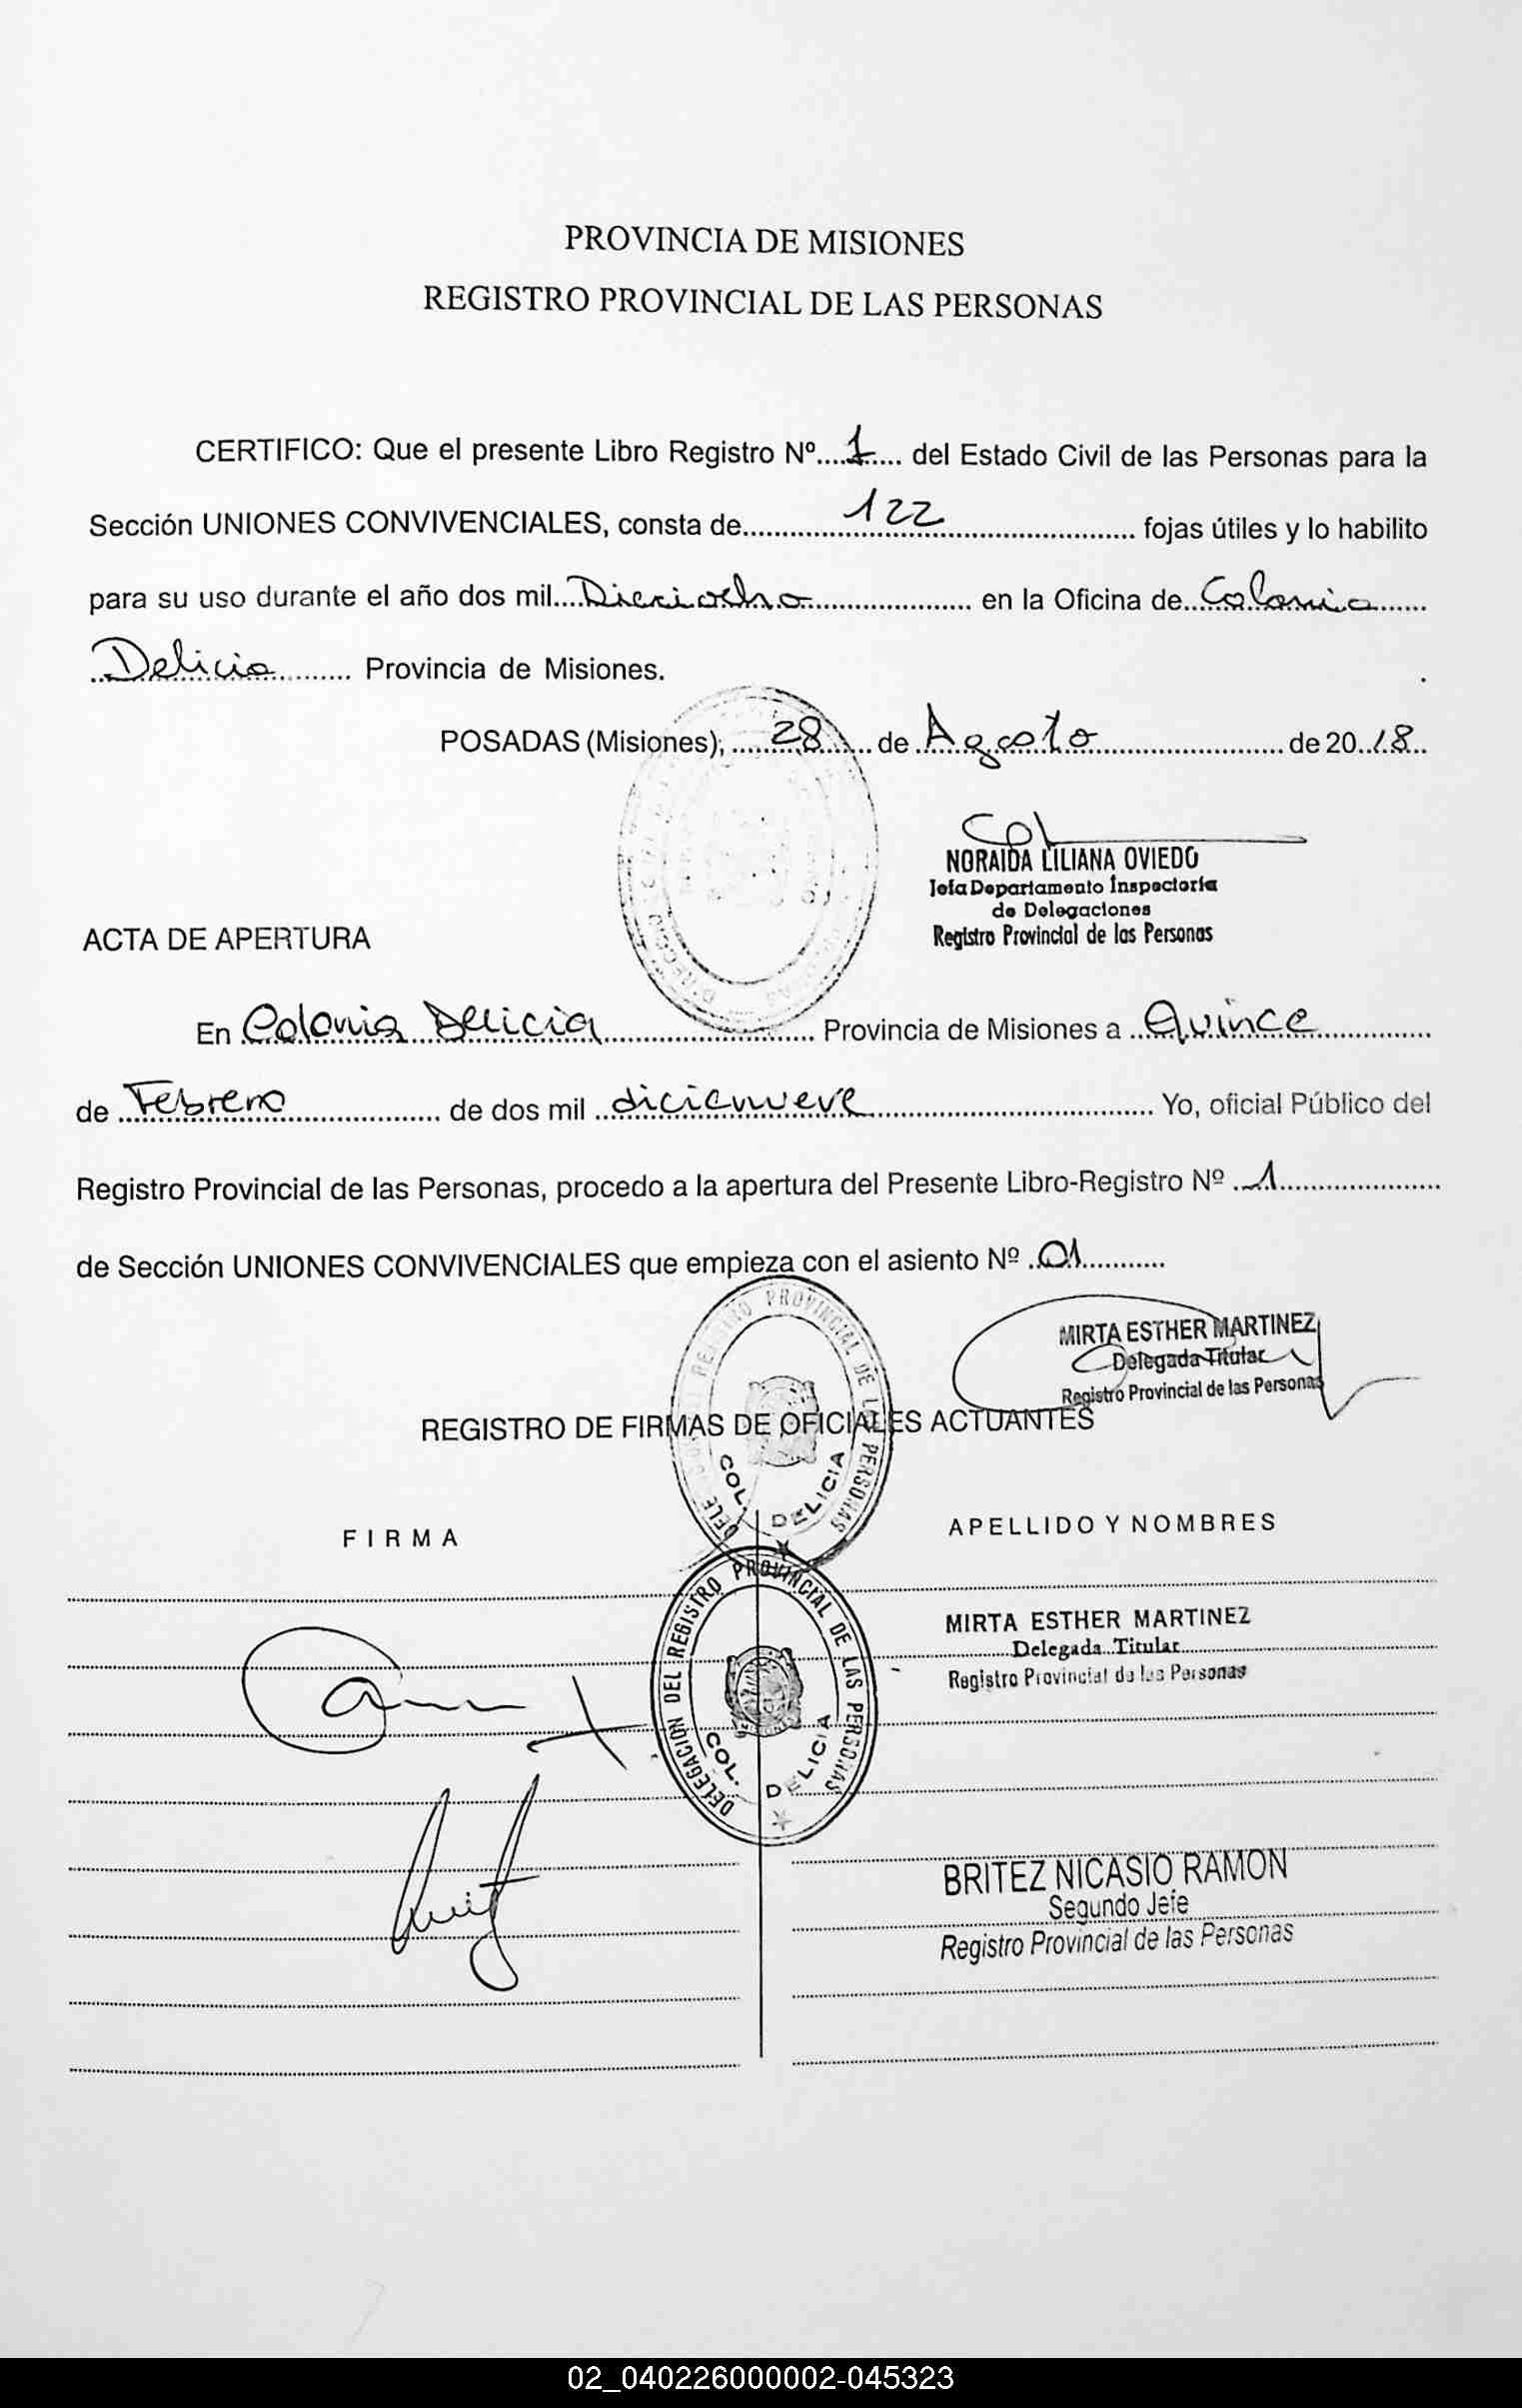 PROVINCIA DE MISIONES
REGISTRO PROVINCIAL DE LAS PERSONAS
CERTIFICO: Que el presente Libro Registro Nº....1..... del Estado Civil de las Personas para la
Sección UNIONES CONVIVENCIALES, consta de.......122....... fojas útiles y lo habilito
para su uso durante el año dos mil....Dieciocho.......... en la Oficina de...Colonia......
..Delicia......... Provincia de Misiones.
POSADAS (Misiones), .....28..... de ..Agosto.......... de 20..18..
NORAIDA LILIANA OVIEDO
Jefa Departamento Inspectoría
de Delegaciones
Registro Provincial de las Personas
ACTA DE APERTURA
En Colonia Delicia............ Provincia de Misiones a ..Quince............
de ..Febrero............ de dos mil ..diecinueve............ Yo, oficial Público del
Registro Provincial de las Personas, procedo a la apertura del Presente Libro-Registro Nº ..1............
de Sección UNIONES CONVIVENCIALES que empieza con el asiento Nº ..01............
MIRTA ESTHER MARTINEZ
Delegada Titular
Registro Provincial de las Personas
REGISTRO DE FIRMAS DE OFICIALES ACTUANTES
REGISTRO PROVINCIAL DE LAS PERSONAS
COL. DELICIA
FIRMA
APELLIDO Y NOMBRES
DELEGACION DEL REGISTRO PROVINCIAL DE LAS PERSONAS
COL. DELICIA
MIRTA ESTHER MARTINEZ
Delegada Titular
Registro Provincial de las Personas
BRITEZ NICASIO RAMON
Segundo Jefe
Registro Provincial de las Personas
02_040226000002-045323